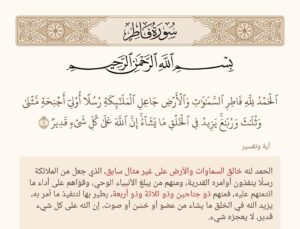 سورة فاطر
بسم الله الرحمن الرحيم
ٱلۡحَمۡدُ لِلَّهِ فَاطِرِ ٱلسَّمَٰوَٰتِ وَٱلۡأَرۡضِ جَاعِلِ ٱلۡمَلَٰٓئِكَةِ رُسُلًا أُوْلِيٓ أَجۡنِحَةٖ مَّثۡنَىٰ
وَثُلَٰثَ وَرُبَٰعَۚ يَزِيدُ فِي ٱلۡخَلۡقِ مَا يَشَآءُۚ إِنَّ ٱللَّهَ عَلَىٰ كُلِّ شَيۡءٖ قَدِيرٞ ١
آية وتفسير
الحمد لله خالق السماوات والأرض على غير مثال سابق، الذي جعل من الملائكة
رسلًا ينفذون أوامره القدرية، ومنهم من يبلغ الأنبياء الوحي، وقوّاهم على أداء ما
ائتمنهم عليه، فمنهم ذو جناحين وذو ثلاثة وذو أربعة، يطير بها لتنفيذ ما أمر به،
يزيد الله في الخلق ما يشاء من عضو أو حسن أو صوت، إن الله على كل شيء
قدير، لا يعجزه شيء.